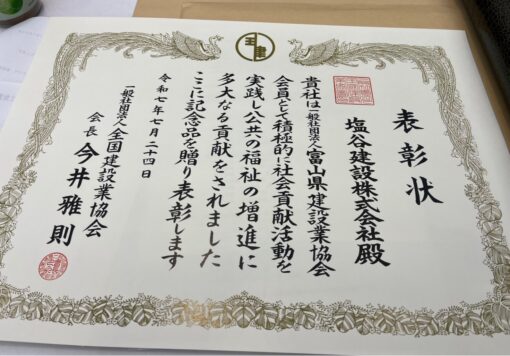 表彰状
塩谷建設株式会社殿
貴社は一般社団法人富山県建設業協会
会員として積極的に社会貢献活動を
実践し公共の福祉の増進に
多大なる貢献をされました
ここに記念品を贈り表彰します
令和七年七月二十四日
一般社団法人全国建設業協会
会長 今井雅則